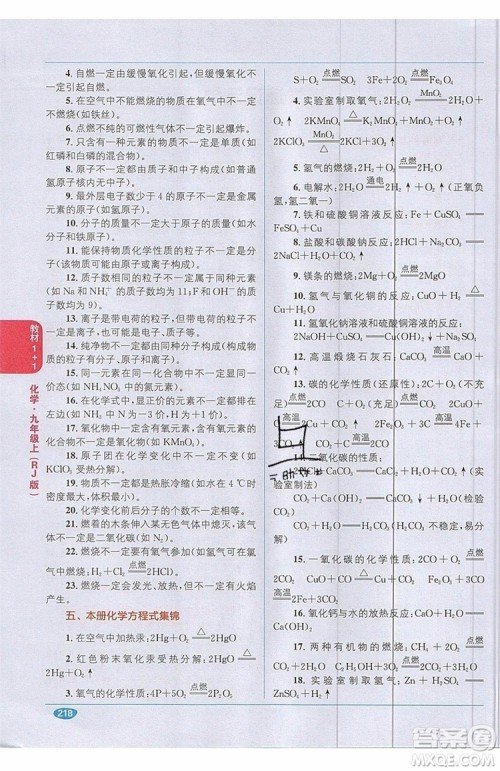 4. 自燃一定由缓慢氧化引起,但缓慢氧化
不一定引起自燃。
5. 在空气中不能燃烧的物质在氧气中不一定
不能燃烧(如铁丝)。
6. 点燃不纯的可燃性气体不一定引起爆炸。
7. 只含有一种元素的物质不一定是单质(如
红磷和白磷的混合物)。
8. 原子不一定都由质子、中子和电子构成
(如氢原子)。
9. 最外层电子数少于 4 的原子不一定是金属
元素的原子(如氢原子)。
10. 分子的质量不一定大于原子的质量。
11. 能保持物质化学性质的粒子不一定是分
子(该物质可能由原子或离子构成)。
12. 质子数相同的粒子不一定属于同种元素
(如 Na 和 NH₄⁺ 的质子数都为 11;F 和 OH⁻ 的质
子数都为 9)。
13. 离子是带电荷的粒子,但带电荷的粒子
不一定是离子(如质子、电子)。
14. 纯净物不一定由同种分子构成(构成物
质的粒子有原子、分子、离子)。
15. 同一元素在同一物质中的化合价不一定
相同(如 NH₄NO₃ 中的氮元素)。
16. 在化学式中,正价不一定写在前,负价不
一定写在后(如 NH₃ 中 N 显 −3 价,H 显 +1 价)。
17. 氧化物中一定含有氧元素,但含有氧元
素的物质不一定是氧化物(如 KMnO₄)。
18. 原子团在化学变化中不一定保持不变(如
KClO₃ 受热分解时原子团被破坏)。
19. 物质不一定都是热胀冷缩(如水在 4 ℃
以下时是热缩冷胀)。
20. 化学变化前后分子总数不一定改变。
21. 燃着的木条伸入某无色气体中熄灭,该
气体不一定是二氧化碳(如氮气)。
22. 有单质和化合物参加或生成的反应,不
一定就是置换反应。
23. 燃烧不一定要有氧气参加(如氢气在氯
气中燃烧:H₂ + Cl₂ 点燃 2HCl)。
24. 燃烧一定会发光、放热,但不一定有火焰
产生。
五、本册化学方程式集锦
1. 在空气中加热汞:2Hg + O₂ △ 2HgO
2. 红色粉末氧化汞受热分解:2HgO △ 2Hg +
O₂ ↑
3. 氧气的化学性质:4P + 5O₂ 点燃 2P₂O₅
218
教材1+1
化学·九年级上(RJ版)
S + O₂ 点燃 SO₂ 3Fe + 2O₂ 点燃 Fe₃O₄
4. 实验室制取氧气:2H₂O₂ MnO₂ 2H₂O +
O₂ ↑ 2KMnO₄ △ K₂MnO₄ + MnO₂ + O₂ ↑
2KClO₃ MnO₂ △ 2KCl + 3O₂ ↑
5. 氢气的燃烧:2H₂ + O₂ 点燃 2H₂O
6. 电解水:2H₂O 通电 2H₂ ↑ + O₂ ↑ (正氧负
氢,氢二氧一)
7. 铁和硫酸铜溶液反应:Fe + CuSO₄ =
FeSO₄ + Cu
8. 盐酸和碳酸钠反应:Na₂CO₃ + 2HCl =
2NaCl + H₂O + CO₂ ↑
9. 镁条的燃烧:2Mg + O₂ 点燃 2MgO
10. 氢气与氧化铜的反应:H₂ + CuO △
Cu + H₂O
11. 氢氧化钠与硫酸铜溶液的反应:CuSO₄ +
2NaOH = Na₂SO₄ + Cu(OH)₂ ↓
12. 高温煅烧石灰石:CaCO₃ 高温 CaO +
CO₂ ↑
13. 碳的化学性质(还原性):C + O₂(充足)
点燃 CO₂ 2C + O₂(不充足) 点燃 2CO C +
2CuO 高温 2Cu + CO₂ ↑ 2Fe₂O₃ + 3C 高温 4Fe +
3CO₂ ↑ C + CO₂ 高温 2CO
14. 二氧化碳的化学性质:CO₂ + H₂O =
H₂CO₃ Ca(OH)₂ + CO₂ = CaCO₃ ↓ + H₂O
15. 制取二氧化碳:CaCO₃ + 2HCl =
CaCl₂ + H₂O + CO₂ ↑ (实
验室制法)
H₂CO₃ = H₂O + CO₂ ↑ (碳酸不稳定,易
分解)
一氧化碳的化学性质:2CO + O₂ 点燃
2CO₂ CO + CuO △ Cu + CO₂
16. 氧化钙与水的反应:CaO + H₂O =
Ca(OH)₂
17. 两种有机物的燃烧:CH₄ + 2O₂ 点燃
CO₂ + 2H₂O C₂H₅OH + 3O₂ 点燃 2CO₂ + 3H₂O
18. 实验室制取氢气:Zn + H₂SO₄ =
ZnSO₄ + H₂ ↑
答案圈